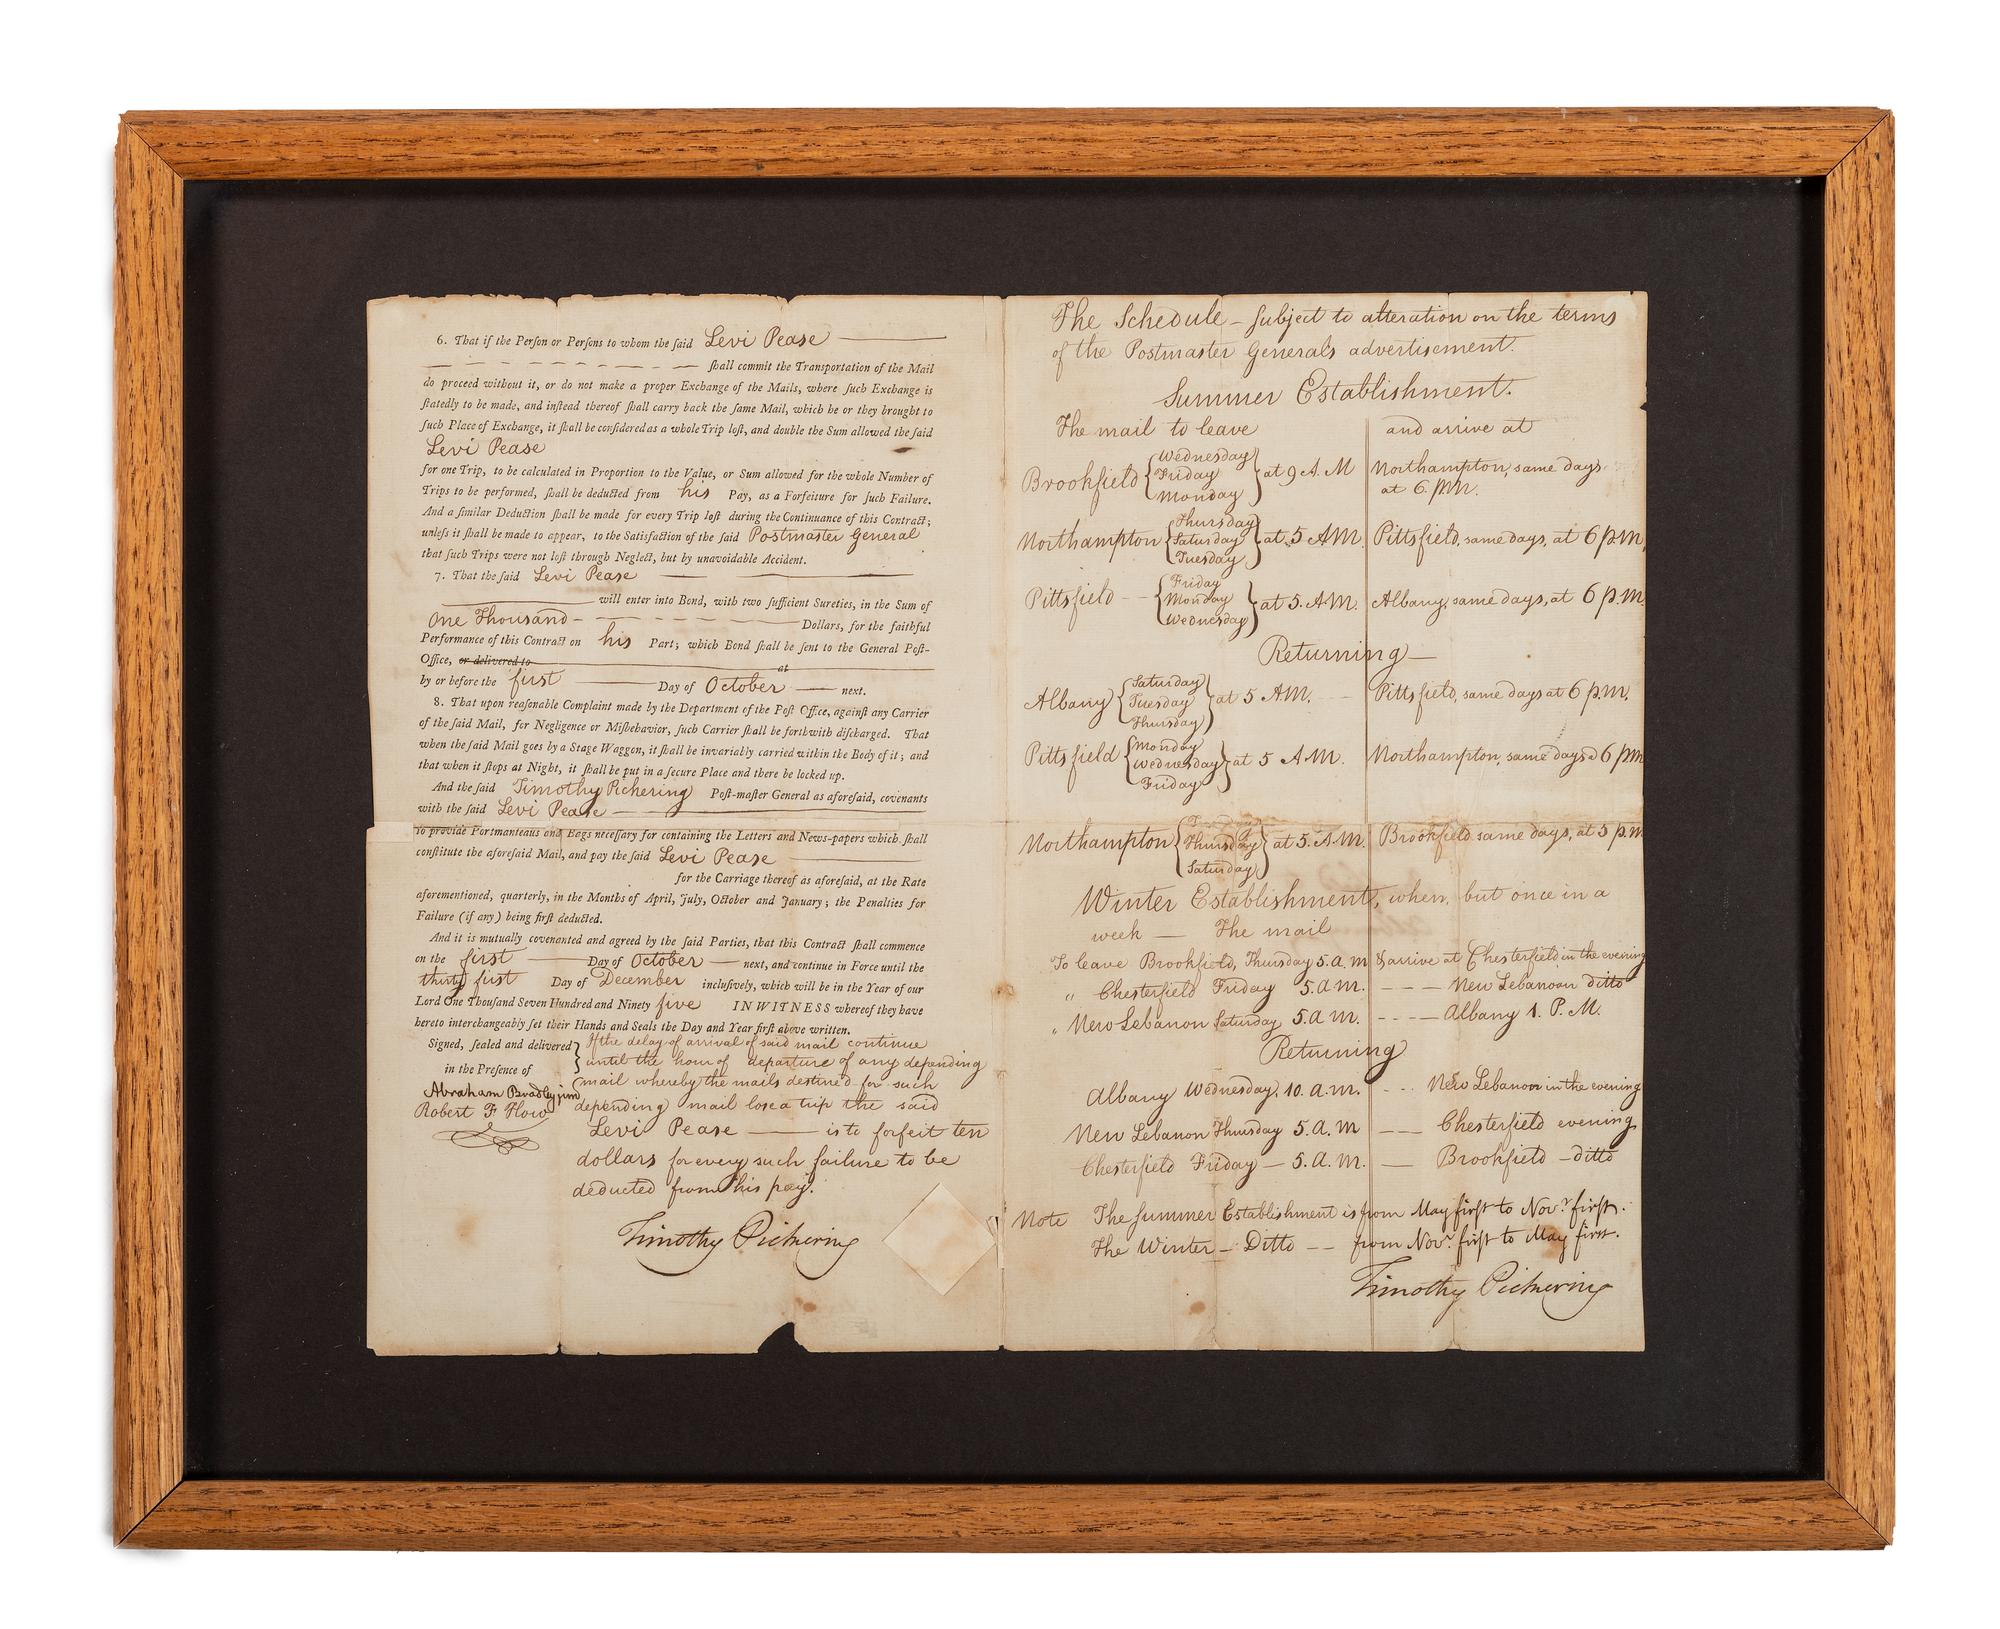 6. That if the Perſon or Perſons to whom the ſaid Levi Pease
ſhall commit the Transportation of the Mail
do proceed without it, or do not make a proper Exchange of the Mails, where ſuch Exchange is
ſtatedly to be made, and inſtead thereof ſhall carry back the ſame Mail, which he or they brought to
ſuch Place of Exchange, it ſhall be conſidered as a whole Trip loſt, and double the Sum allowed the ſaid
Levi Pease
for one Trip, to be calculated in Proportion to the Value, or Sum allowed for the whole Number of
Trips to be performed, ſhall be deducted from his Pay, as a Forfeiture for ſuch Failure.
And a ſimilar Deduction ſhall be made for every Trip loſt during the Continuance of this Contract;
unleſs it ſhall be made to appear, to the Satisfaction of the ſaid Postmaster General
that ſuch Trips were not loſt through Neglect, but by unavoidable Accident.
7. That the ſaid Levi Pease
will enter into Bond, with two ſufficient Sureties, in the Sum of
One Thousand Dollars, for the faithful
Performance of this Contract on his Part; which Bond ſhall be ſent to the General Poſt-
Office, or delivered to at
by or before the first Day of October next.
8. That upon reaſonable Complaint made by the Department of the Poſt Office, againſt any Carrier
of the ſaid Mail, for Negligence or Miſbehavior, ſuch Carrier ſhall be forthwith diſcharged. That
when the ſaid Mail goes by a Stage Waggon, it ſhall be invariably carried within the Body of it; and
that when it ſtops at Night, it ſhall be put in a ſecure Place and there be locked up.
And the ſaid Timothy Pickering Poſt-maſter General as aforeſaid, covenants
with the ſaid Levi Pease
to provide Portmanteaus and Bags neceſſary for containing the Letters and News-papers which ſhall
conſtitute the aforeſaid Mail, and pay the ſaid Levi Pease
for the Carriage thereof as aforeſaid, at the Rate
aforementioned, quarterly, in the Months of April, July, October and January; the Penalties for
Failure (if any) being firſt deducted.
And it is mutually covenanted and agreed by the ſaid Parties, that this Contract ſhall commence
on the first Day of October next, and continue in Force until the
thirty first Day of December incluſively, which will be in the Year of our
Lord One Thouſand Seven Hundred and Ninety five IN WITNESS whereof they have
hereto interchangeably ſet their Hands and Seals the Day and Year firſt above written.
Signed, ſealed and delivered
in the Preſence of
Abraham Bradley jun
Robert F How
If the delay of arrival of said mail continue
until the hour of departure of any depending
mail whereby the mails destined for such
depending mail lose a trip the said
Levi Pease — is to forfeit ten
dollars for every such failure to be
deducted from his pay.
Timothy Pickering
The Schedule – ſubject to alteration on the terms
of the Postmaster General's advertisement.
Summer Establishment.
The mail to leave and arrive at
Brookfield { Wednesday Friday Monday } at 9 A.M Northampton, same days at 6 P.M.
Northampton { Thursday Saturday Tuesday } at 5 AM. Pittsfield, same days, at 6 p.m.
Pittsfield { Friday Monday Wednesday } at 5. A.M. Albany, same days, at 6 p.m.
Returning —
Albany { Saturday Tuesday Thursday } at 5 AM. Pittsfield, same days at 6 p.m.
Pittsfield { Monday Wednesday Friday } at 5 A.M. Northampton, same days 6 p.m
Northampton { Thursday Saturday } at 5. A.M. Brookfield same days, at 5 p.m
Winter Establishment, when, but once in a
week — The mail
To leave Brookfield, Thursday 5. a.m & arrive at Chesterfield in the evening
" Chesterfield Friday 5. a.m. - - - New Lebanon ditto
" New Lebanon Saturday 5. a.m. - - - Albany 1. P.M.
Returning
Albany Wednesday. 10. a.m. - - New Lebanon in the evening
New Lebanon Thursday 5. a.m — Chesterfield evening
Chesterfield Friday — 5. a.m. — Brookfield – ditto
Note The ſummer Establishment is from May firſt to Novr. firſt.
The Winter – Ditto – – from Novr. firſt to May firſt.
Timothy Pickering